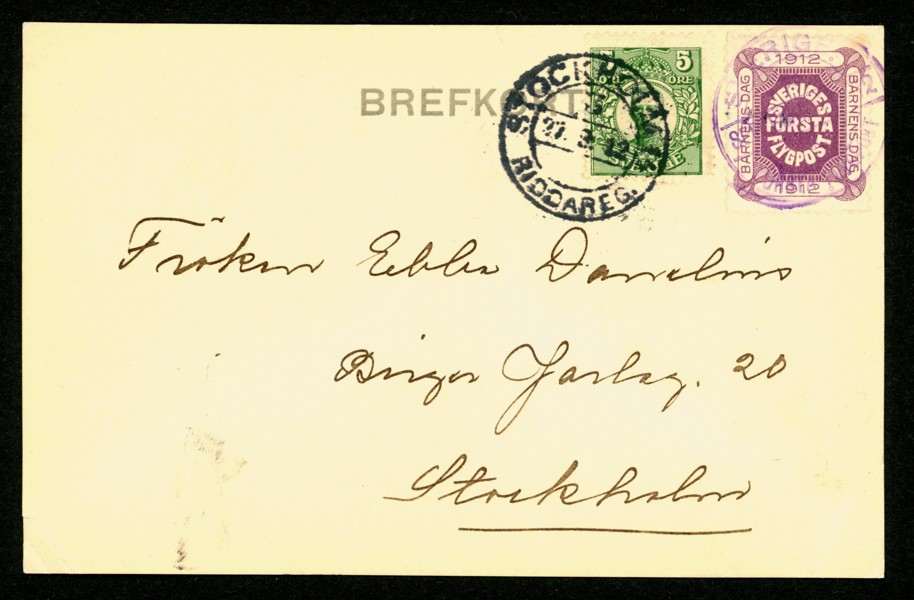 BREFKORT
5
ÖRE
STOCKHOLM
RIDDAREG.
1912
BARNENS DAG
SVERIGES
FÖRSTA
FLYGPOST
BARNENS DAG
1912
Fröken Ebba Danelius
Birger Jarlsg. 20
Stockholm